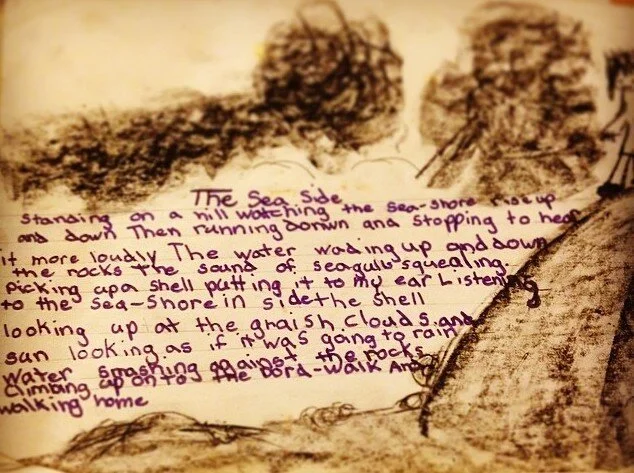 The Sea Side
Standing on a hill watching the sea-shore rise up
and down Then running dorwn and stopping to hear
it more loudly The water wading up and down
the rocks the sound of seagulls squealing.
Picking upa shell putting it to my ear Listening
to the sea-shore in sidethe shell
looking up at the graish clouds and
sun looking as if it was going to rain
Water smashing against the rocks
Climbing up on to the bord-walk And
walking home